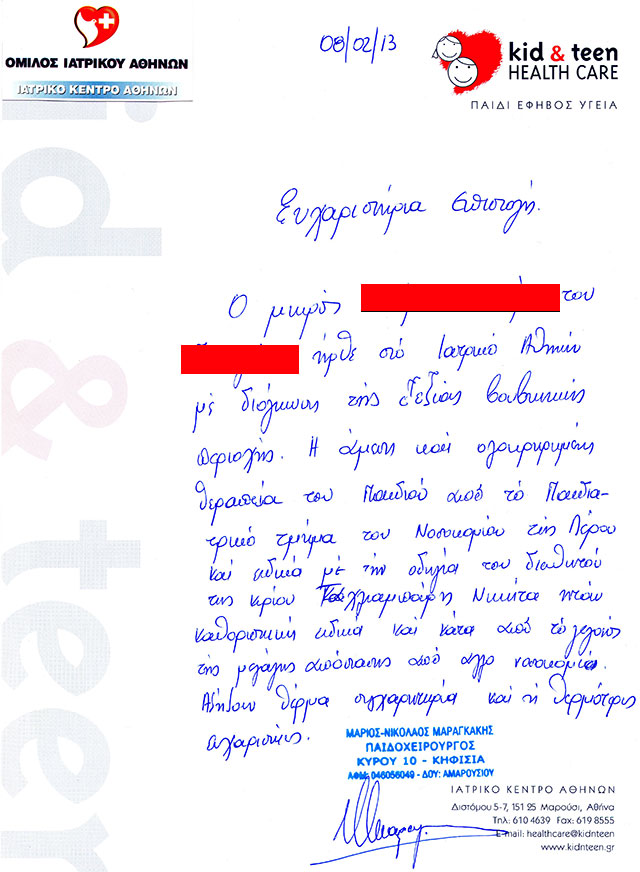 ΟΜΙΛΟΣ ΙΑΤΡΙΚΟΥ ΑΘΗΝΩΝ
ΙΑΤΡΙΚΟ ΚΕΝΤΡΟ ΑΘΗΝΩΝ
08/02/13
kid & teen
HEALTH CARE
ΠΑΙΔΙ ΕΦΗΒΟΣ ΥΓΕΙΑ
id & teen
Ευχαριστήρια επιστολή.
Ο μικρός του
ήρθε στο Ιατρικό Αθηνών
με διόγκωση της δεξιάς βουβωνικής
περιοχής. Η άμεση και ολοκληρωμένη
θεραπεία του Παιδιού από το Παιδια-
τρικό τμήμα του Νοσοκομείου της Λέρου
και ειδικά με την οδηγία του διευθυντού
της κρίου Νικήτα ήταν
καθοριστική ειδικά και κάτω από το γεγονός
της μεγάλης απόστασης από άλλο νοσοκομείο.
θερμά συγχαρητήρια και τη θερμότερη
ευχαρίστηση.
ΜΑΡΙΟΣ-ΝΙΚΟΛΑΟΣ ΜΑΡΑΓΚΑΚΗΣ
ΠΑΙΔΟΧΕΙΡΟΥΡΓΟΣ
ΚΥΡΟΥ 10 - ΚΗΦΙΣΙΑ
ΑΦΜ: 046056049 - ΔΟΥ: ΑΜΑΡΟΥΣΙΟΥ
ΙΑΤΡΙΚΟ ΚΕΝΤΡΟ ΑΘΗΝΩΝ
Διστόμου 5-7, 151 25 Μαρούσι, Αθήνα
Τηλ: 610 4639 Fax: 619 8555
E-mail: healthcare@kidnteen
www.kidnteen.gr